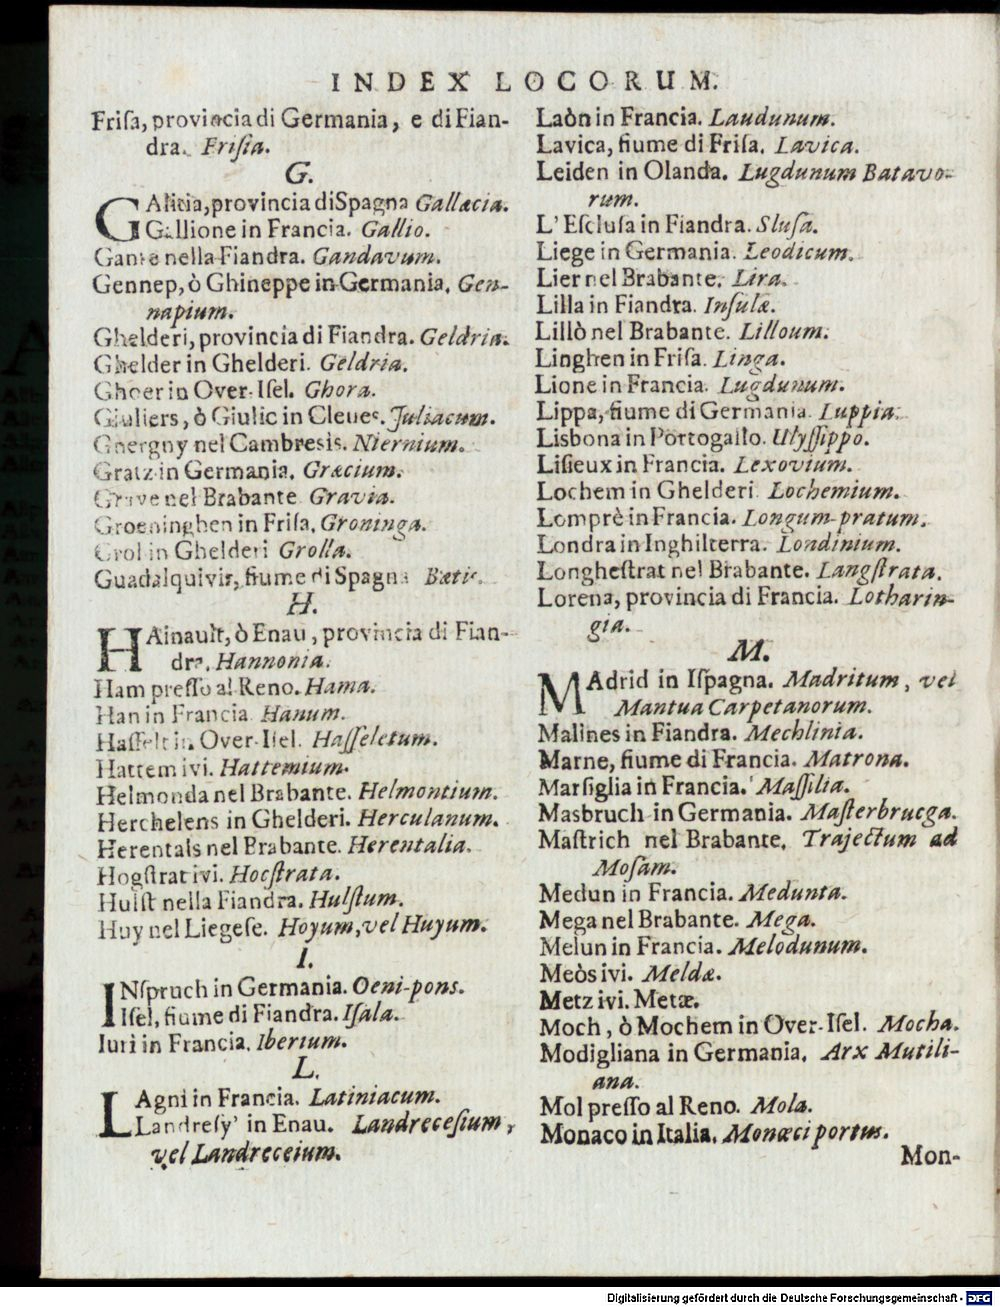 INDEX LOCORUM.
Friſa, provincia di Germania, e di Fian-
dra. Friſia.
G.
GAlitia, provincia di Spagna Gallæcia.
Gallione in Francia. Gallio.
Gante nella Fiandra. Gandavum.
Gennep, ò Ghineppe in Germania. Gen-
napium.
Ghelderi, provincia di Fiandra. Geldria.
Ghelder in Ghelderi. Geldria.
Ghoer in Over-Iſel. Ghora.
Giuliers, ò Giulic in Cleues. Juliacum.
Goergny nel Cambresis. Niernium.
Gratz in Germania. Græcium.
Grave nel Brabante Gravia.
Groeninghen in Friſa. Groninga.
Grol in Ghelderi Grolla.
Guadalquivir, fiume di Spagna Bætis.
H.
HAinault, ò Enau, provincia di Fian-
dra. Hannonia.
Ham preſſo al Reno. Hama.
Han in Francia Hanum.
Haſſelt in Over-Iſel. Haſſeletum.
Hattem ivi. Hattemium.
Helmonda nel Brabante. Helmontium.
Herchelens in Ghelderi. Herculanum.
Herentals nel Brabante. Herentalia.
Hogſtrat ivi. Hocſtrata.
Hulſt nella Fiandra. Hulſtum.
Huy nel Liegeſe. Hoyum, vel Huyum.
I.
INſpruch in Germania. Oeni-pons.
Iſel, fiume di Fiandra. Iſala.
Iuri in Francia. Iberium.
L.
LAgni in Francia. Latiniacum.
Landreſy' in Enau. Landreceſium,
vel Landreceium.
Laòn in Francia. Laudunum.
Lavica, fiume di Friſa. Lavica.
Leiden in Olanda. Lugdunum Batavo-
rum.
L'Eſcluſa in Fiandra. Sluſa.
Liege in Germania. Leodicum.
Lier nel Brabante. Lira.
Lilla in Fiandra. Inſulæ.
Lillò nel Brabante. Lilloum.
Linghen in Friſa. Linga.
Lione in Francia. Lugdunum.
Lippa, fiume di Germania. Luppia.
Lisbona in Portogallo. Ulyſſippo.
Liſieux in Francia. Lexovium.
Lochem in Ghelderi Lochemium.
Lomprè in Francia. Longum-pratum.
Londra in Inghilterra. Londinium.
Longheſtrat nel Brabante. Langſtrata.
Lorena, provincia di Francia. Lotharin-
gia.
M.
MAdrid in Iſpagna. Madritum, vel
Mantua Carpetanorum.
Malines in Fiandra. Mechlinia.
Marne, fiume di Francia. Matrona.
Marſiglia in Francia. Maſſilia.
Masbruch in Germania. Maſterbrucga.
Maſtrich nel Brabante. Trajectum ad
Moſam.
Medun in Francia. Medunta.
Mega nel Brabante. Mega.
Melun in Francia. Melodunum.
Meòs ivi. Meldæ.
Metz ivi. Metæ.
Moch, ò Mochem in Over-Iſel. Mocha.
Modigliana in Germania. Arx Mutili-
ana.
Mol preſſo al Reno. Mola.
Monaco in Italia. Monœci portus.
Mon-
Digitalisierung gefördert durch die Deutsche Forschungsgemeinschaft - DFG